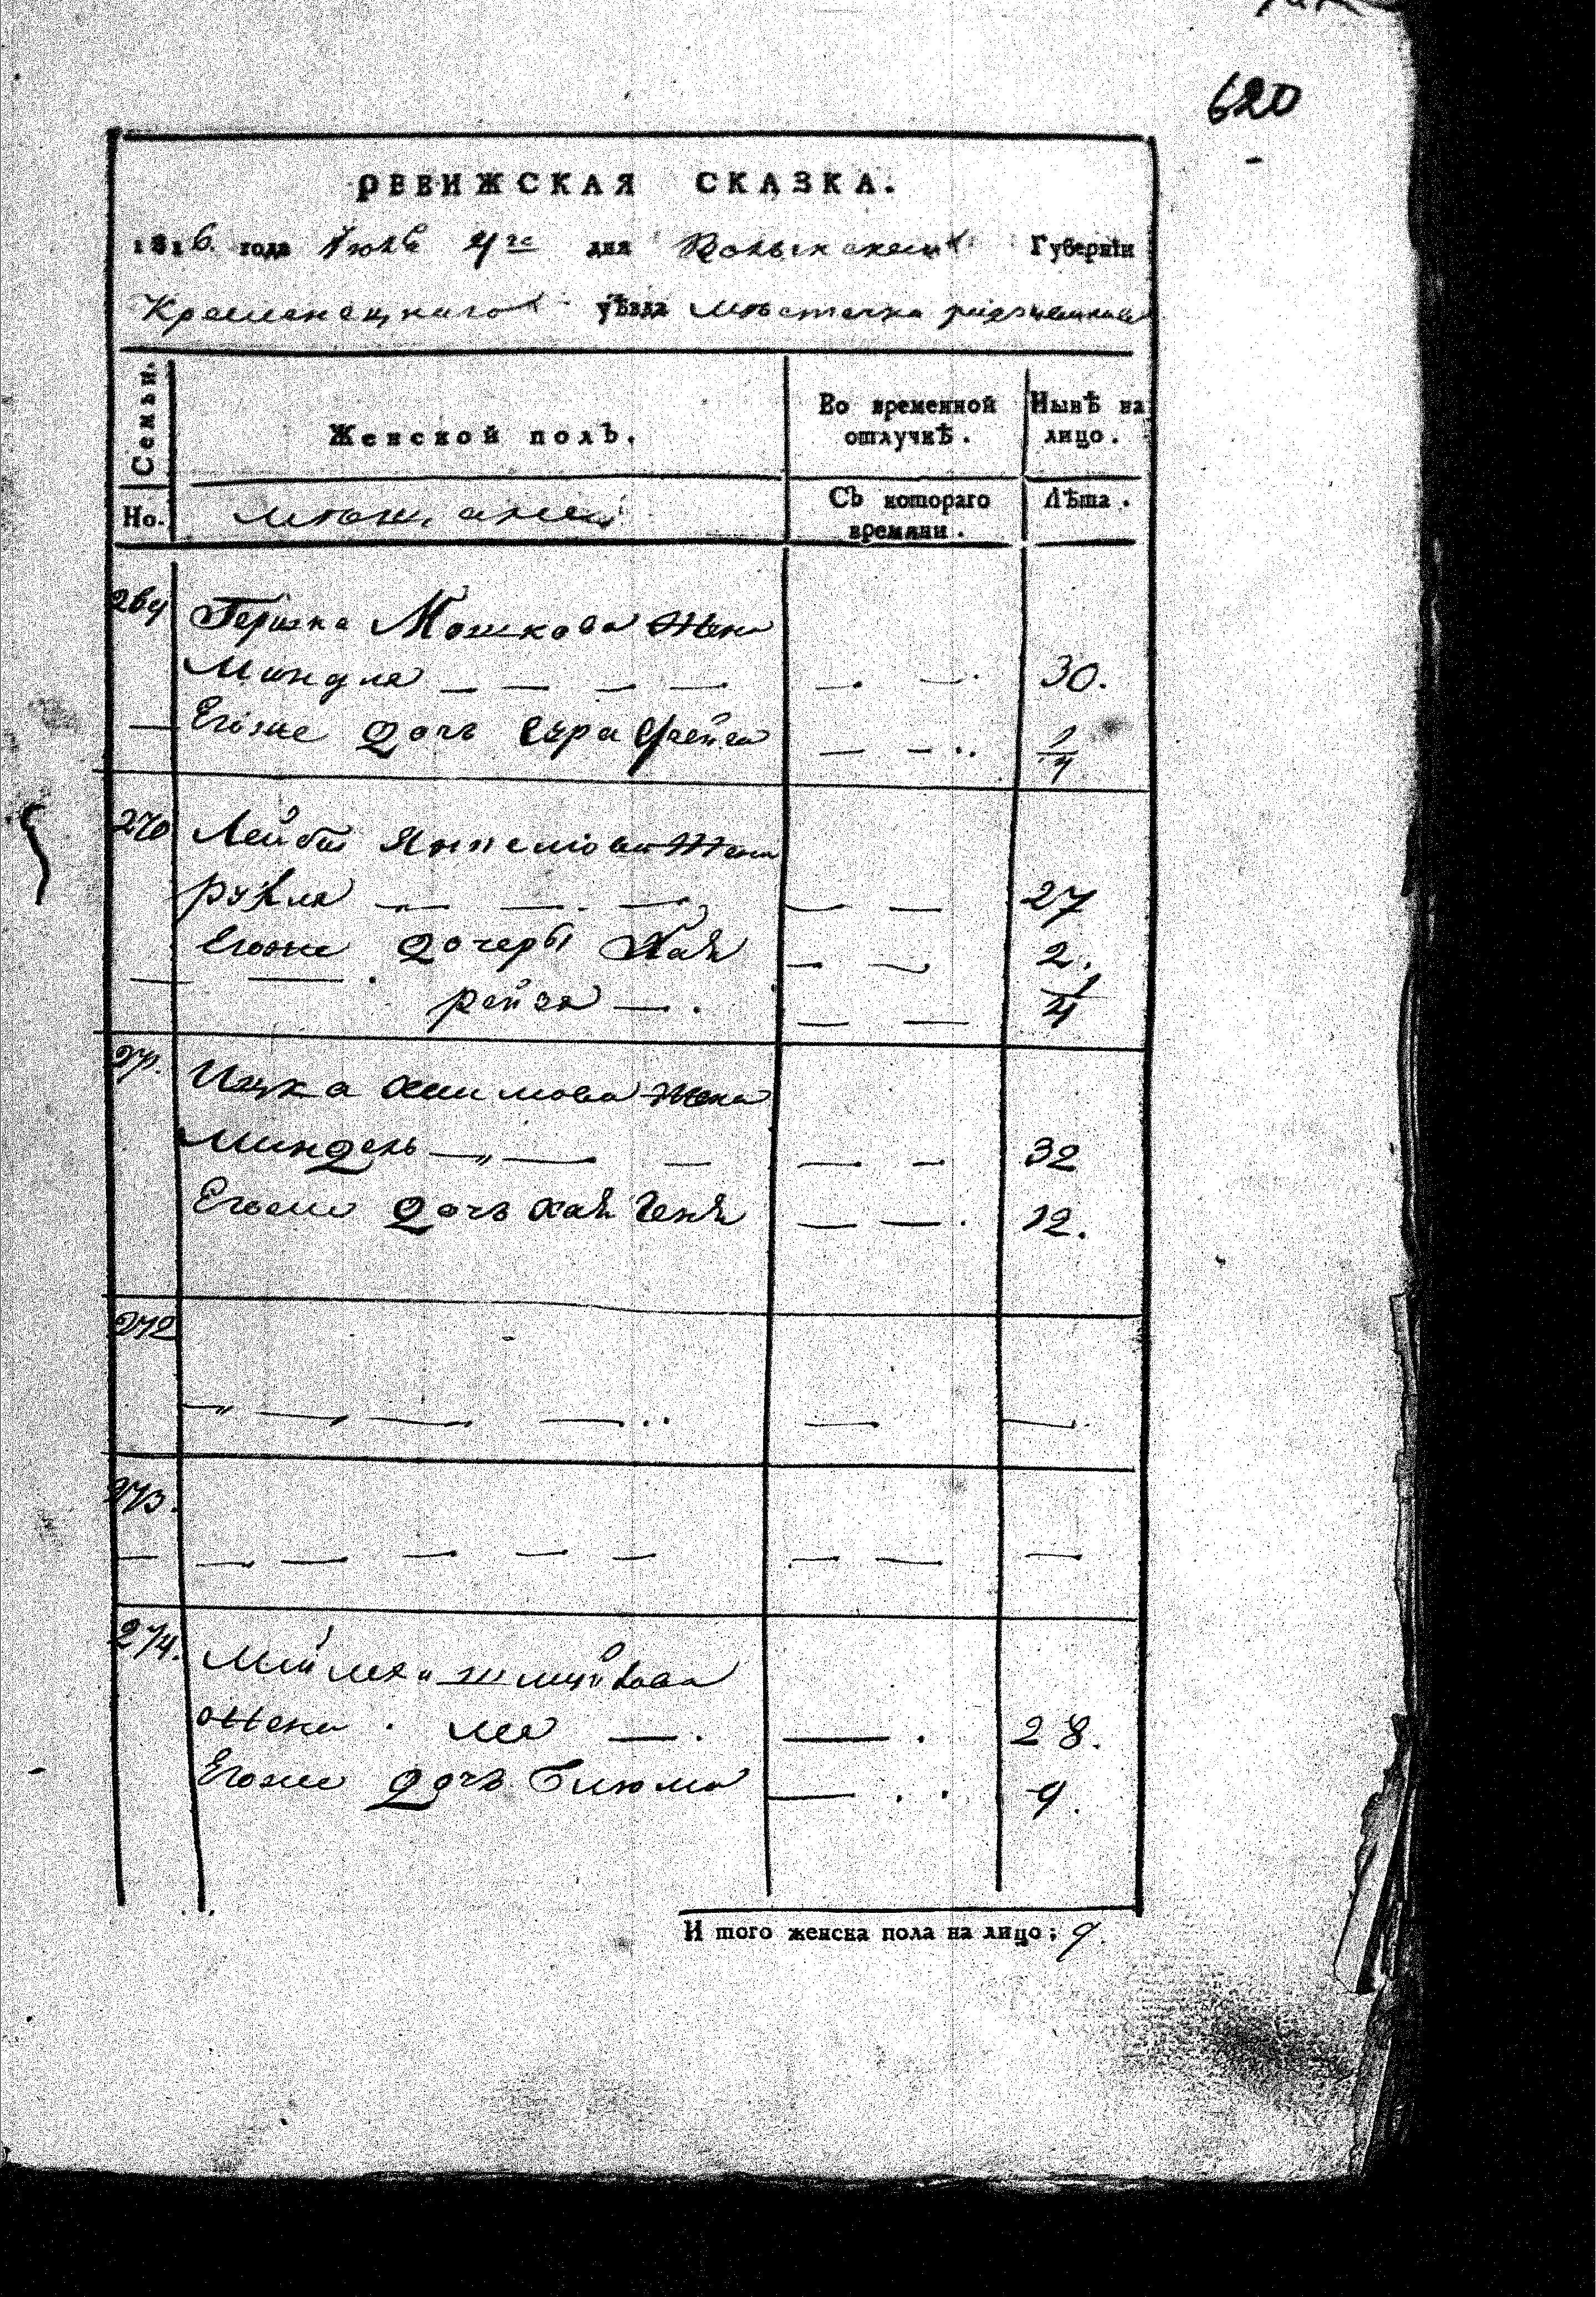 620
РЕВИЖСКАЯ СКАЗКА.
1816. года Іюля 4го дня Волынской Губерніи
Кременецкаго уѣзда местечка
Семьи.
Женской полъ.
Во временной отлучкѣ.
Нынѣ на лицо.
Но.
мещане
Съ котораго времяни.
Лѣта.
269 Гершка Мошкова жена
Миндля — — — — — — 30.
— Егоже дочь Сура Фейга — — 1/4
270 Лейбы Янкелюва жена
рухля — — — — — 27
Егоже дочеры Хая — — 2.
— — рейза — — — 1/4
271. Ицка Хаимова жена
Миндель — — — — — 32
Егоже дочь Хая Геня — — 12.
272
— — — — — —
273.
— — — — — — — — —
274.
жена . лея — — 28.
Егоже дочь Блюма — 9.
И того женска пола на лицо: 9.